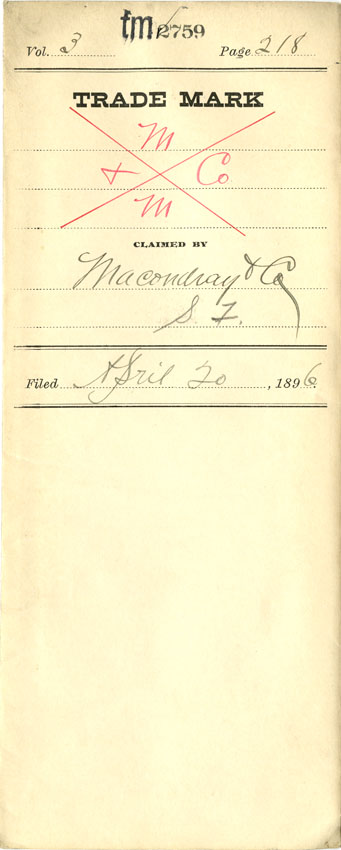 tm 2759
Vol. 3 Page 218
TRADE MARK
M
& Co
M
CLAIMED BY
Macondray & Co
S. F.
Filed April 20, 1896.